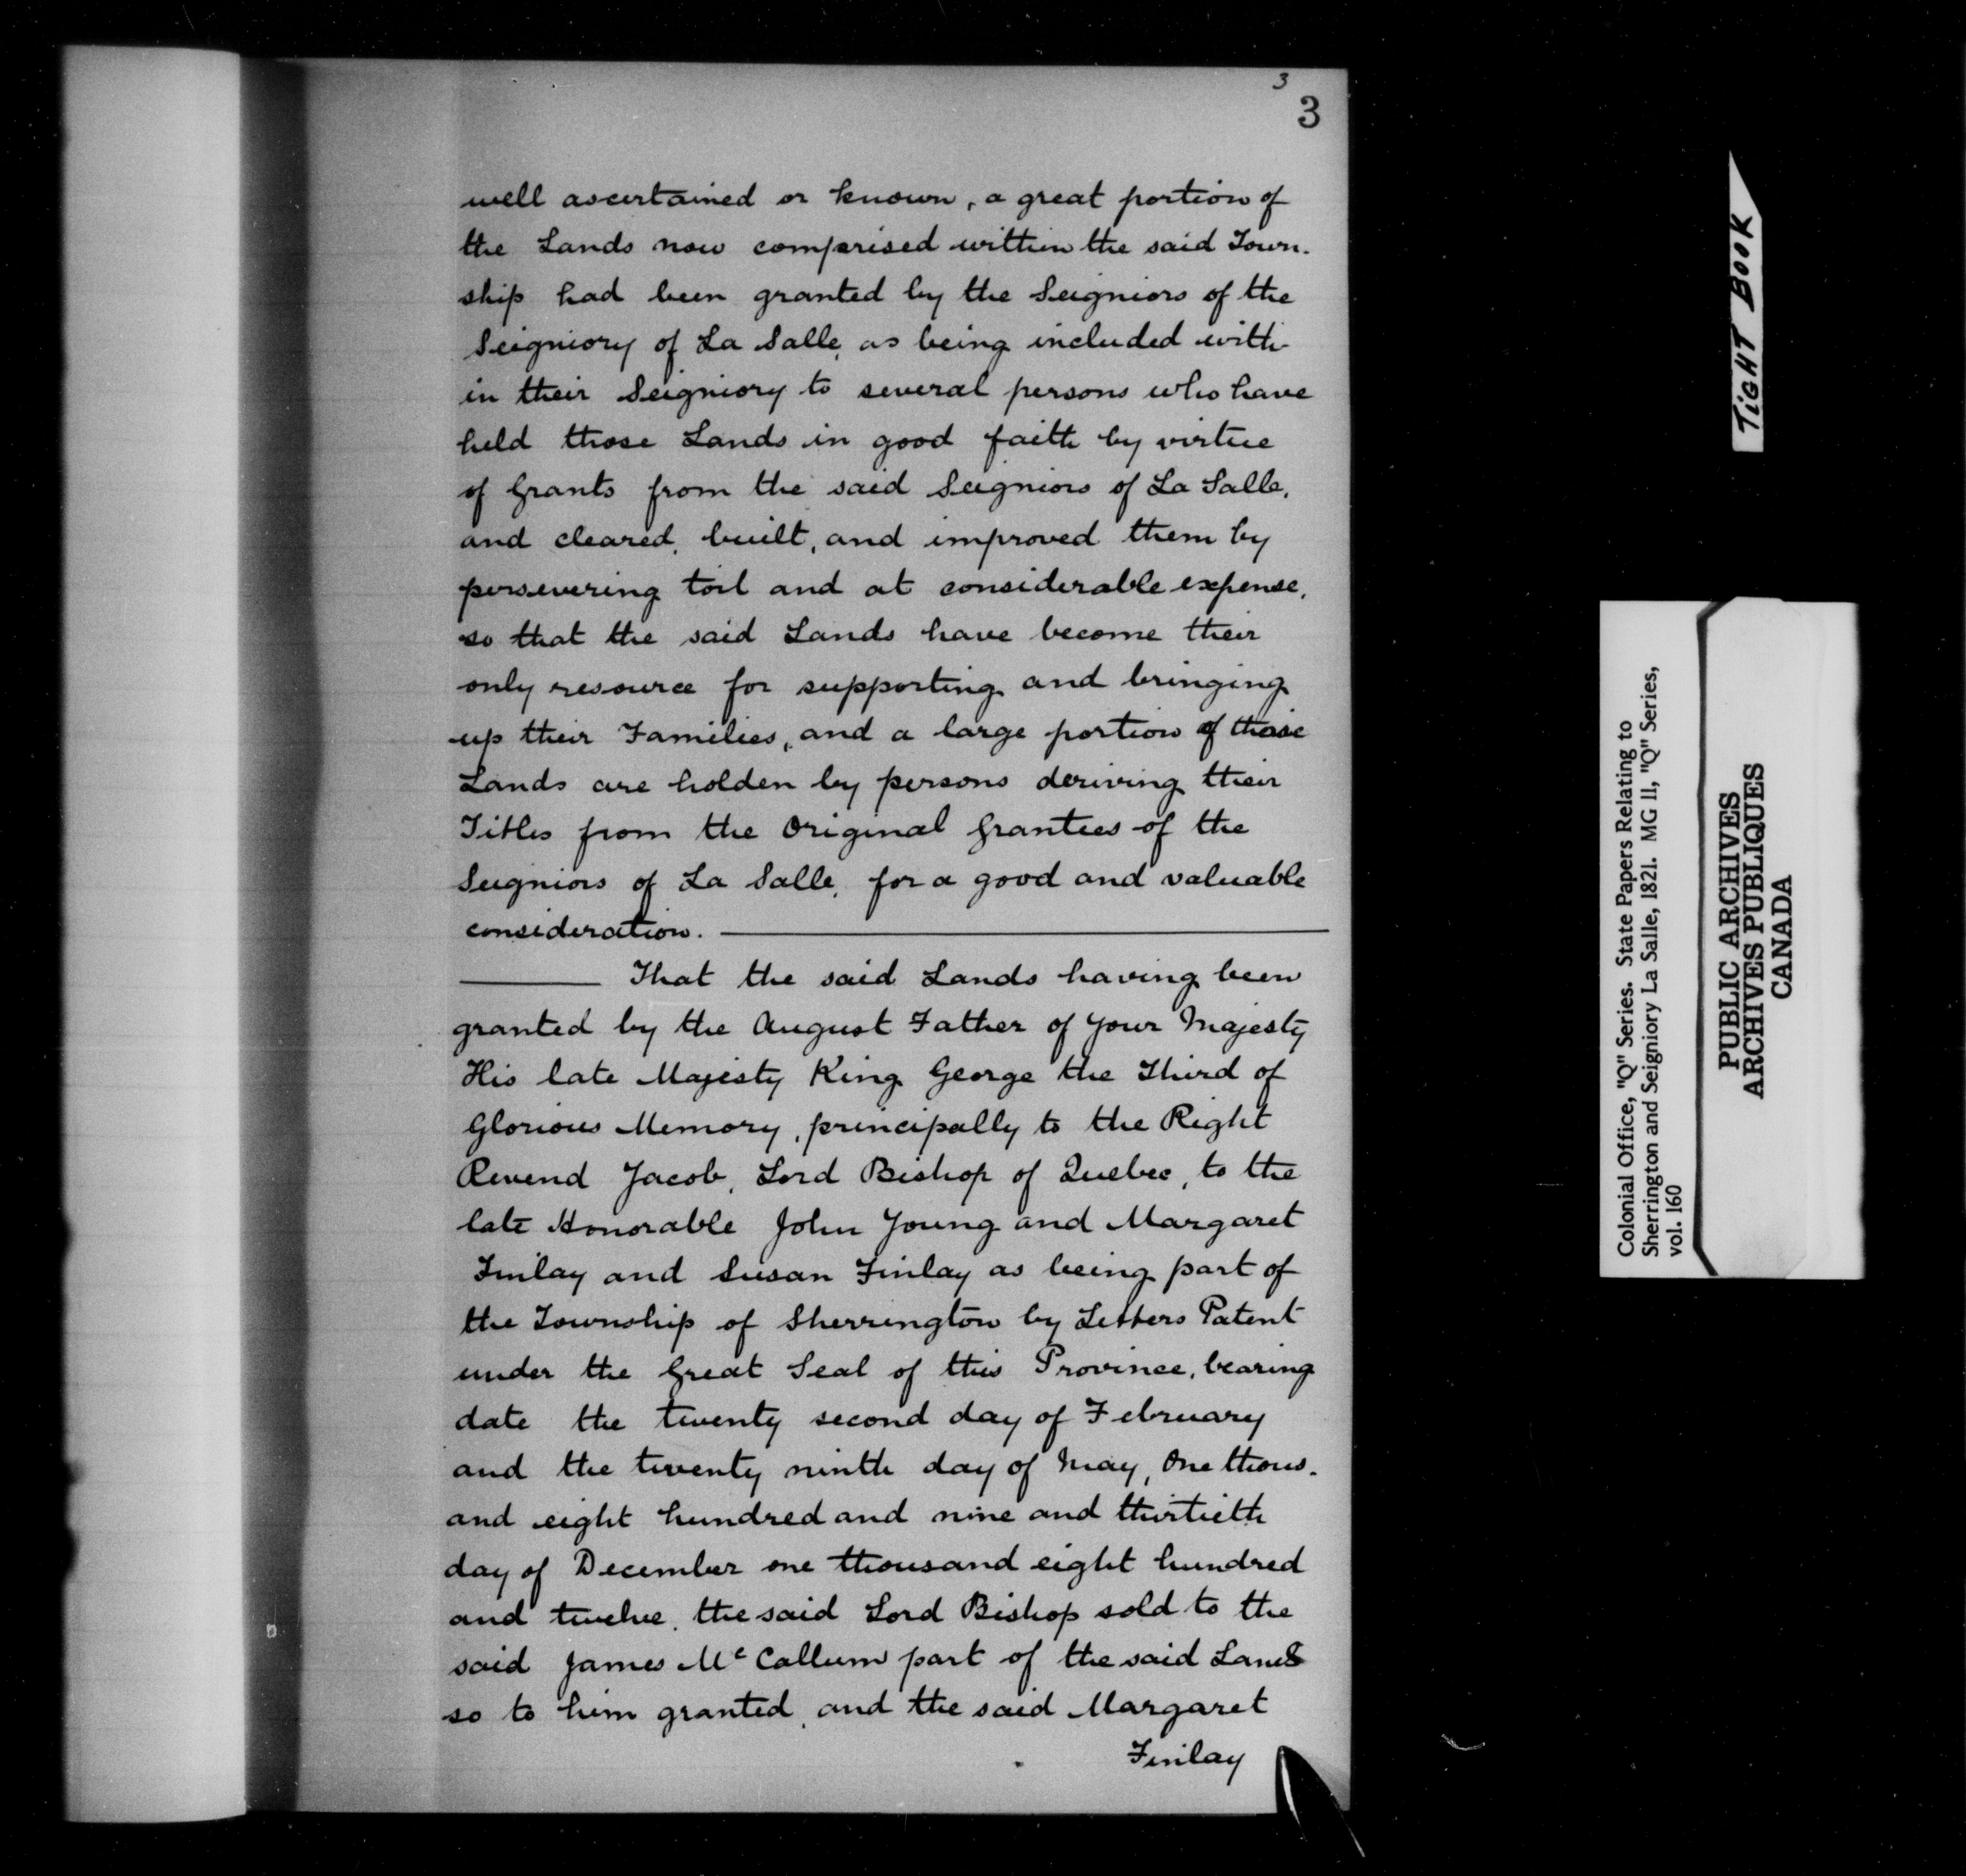 3
3
well ascertained or known, a great portion of
the Lands now comprised within the said Town-
ship had been granted by the Seigniors of the
Seigniory of La Salle, as being included with-
in their Seigniory to several persons who have
held those Lands in good faith by virtue
of Grants from the said Seigniors of La Salle,
and cleared, built, and improved them by
persevering toil and at considerable expense,
so that the said Lands have become their
only resource for supporting and bringing
up their Families, and a large portion of those
Lands are holden by persons deriving their
Titles from the Original Grantees of the
Seigniors of La Salle, for a good and valuable
consideration.
That the said Lands having been
granted by the August Father of Your Majesty
His late Majesty King George the Third of
Glorious Memory, principally to the Right
Revend Jacob, Lord Bishop of Quebec, to the
late Honorable John Young and Margaret
Finlay and Susan Finlay as being part of
the Township of Sherrington by Letters Patent
under the Great Seal of this Province, bearing
date the twenty second day of February
and the twenty ninth day of May, One thous-
and eight hundred and nine and thirtieth
day of December one thousand eight hundred
and twelve, the said Lord Bishop sold to the
said James Mc Callum part of the said Lands
so to him granted, and the said Margaret
Finlay
TIGHT BOOK
Colonial Office, "Q" Series. State Papers Relating to
Sherrington and Seigniory La Salle, 1821. MG 11, "Q" Series,
vol. 160
PUBLIC ARCHIVES
ARCHIVES PUBLIQUES
CANADA